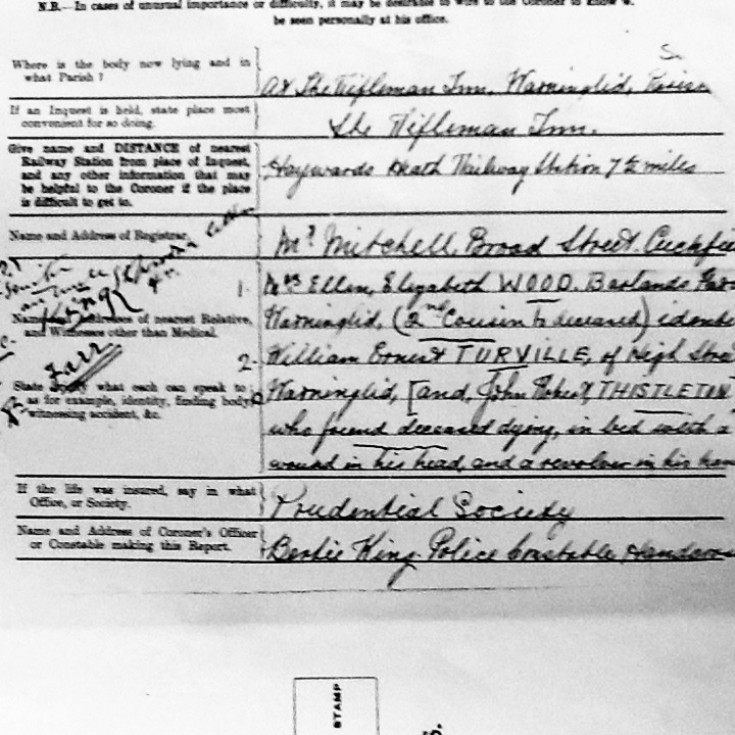 N.B.—In cases of unusual importance or difficulty, it may be desirable to wire to the Coroner to know
be seen personally at his office.
Where is the body now lying and in
what Parish?
At The Rifleman Inn, Warninglid, Parish
If an Inquest is held, state place most
convenient for so doing.
The Rifleman Inn.
Give name and DISTANCE of nearest
Railway Station from place of Inquest,
and any other information that may
be helpful to the Coroner if the place
is difficult to get to.
Haywards Heath Railway Station 7½ miles
Name and Address of Registrar.
Mr Mitchell, Broad Street. Cuckfie
Names and Addresses of nearest Relative,
and Witnesses other than Medical.
State what each can speak to
as for example, identity, finding body,
witnessing accident, &c.
1. Mrs Ellen, Elizabeth WOOD.
Warninglid, (2nd Cousin to deceased) idente
2. William Ernest TURVILLE, of High Stree
Warninglid, [and, John Robert, THISTLETON
who found deceased dying, in bed with a
wound in his head, and a revolver in his han
If the life was insured, say in what
Office, or Society.
Prudential Society
Name and Address of Coroner's Officer
or Constable making this Report.
Bertie King Police Constable Handcros
STAMP